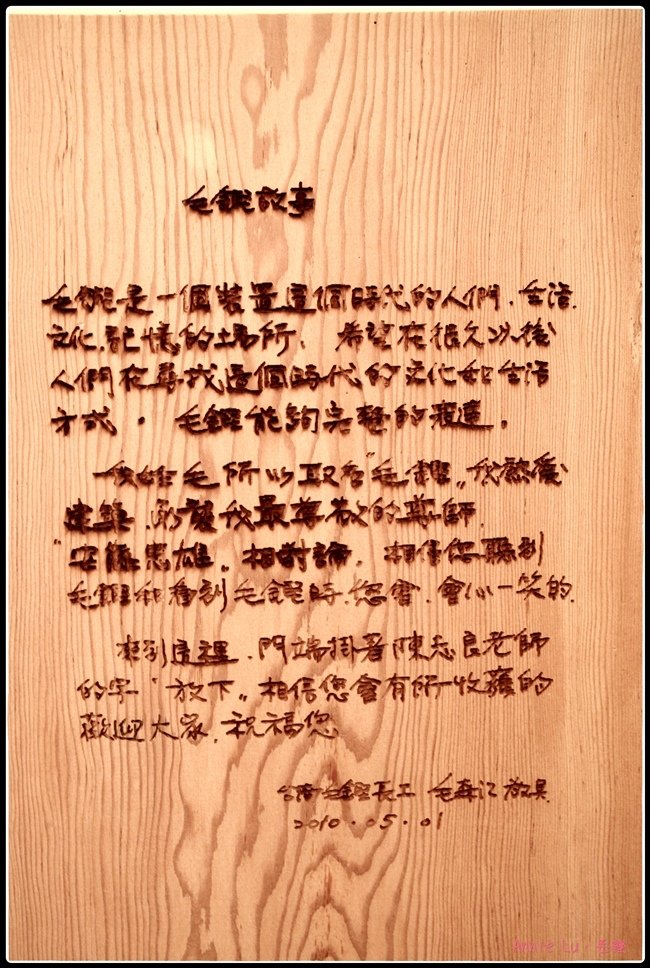 毛屋故事
毛屋是一個裝置這個時代的人們.生活.
文化.記憶的場所. 希望在很久以後
人們在尋找這個時代的文化和生活
方式. 毛屋能夠完整的表達.
我姓毛所以取名"毛屋"我
建築.的 我最尊敬的尊師.
"安藤忠雄"相對論. 相信您聽到
毛屋和看到毛屋時.您會.會心一笑的.
來到這裡.門端掛著陳志良老師
的字"放下"相信您會有所收穫的
歡迎大家.祝福您
台南毛屋長工 毛森江 敬具
2010.05.01